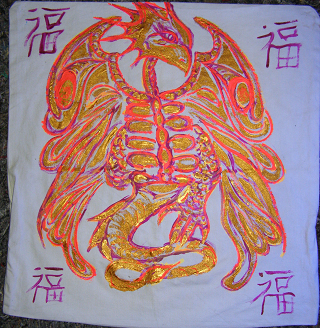 福 福
福 福